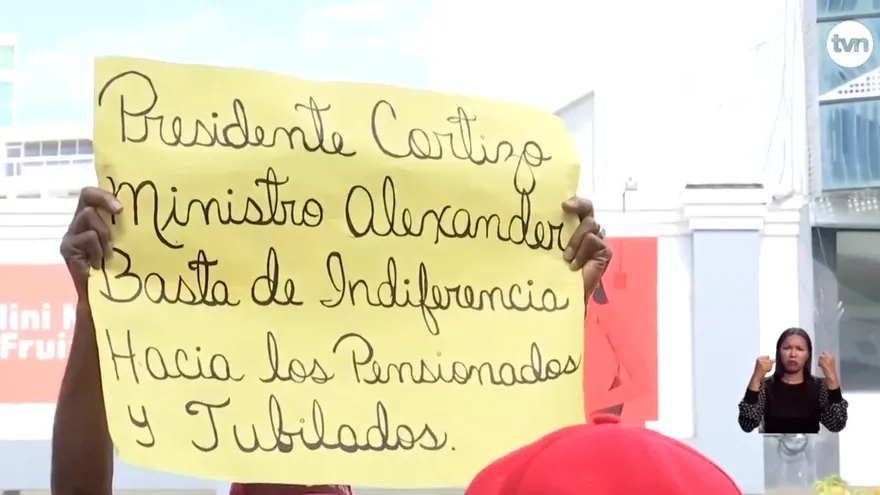 tvn
Presidente Cortizo
Ministro Alexander
Basta de Indiferencia
Hacia los Pensionados
y Jubilados.
Mini
Frui